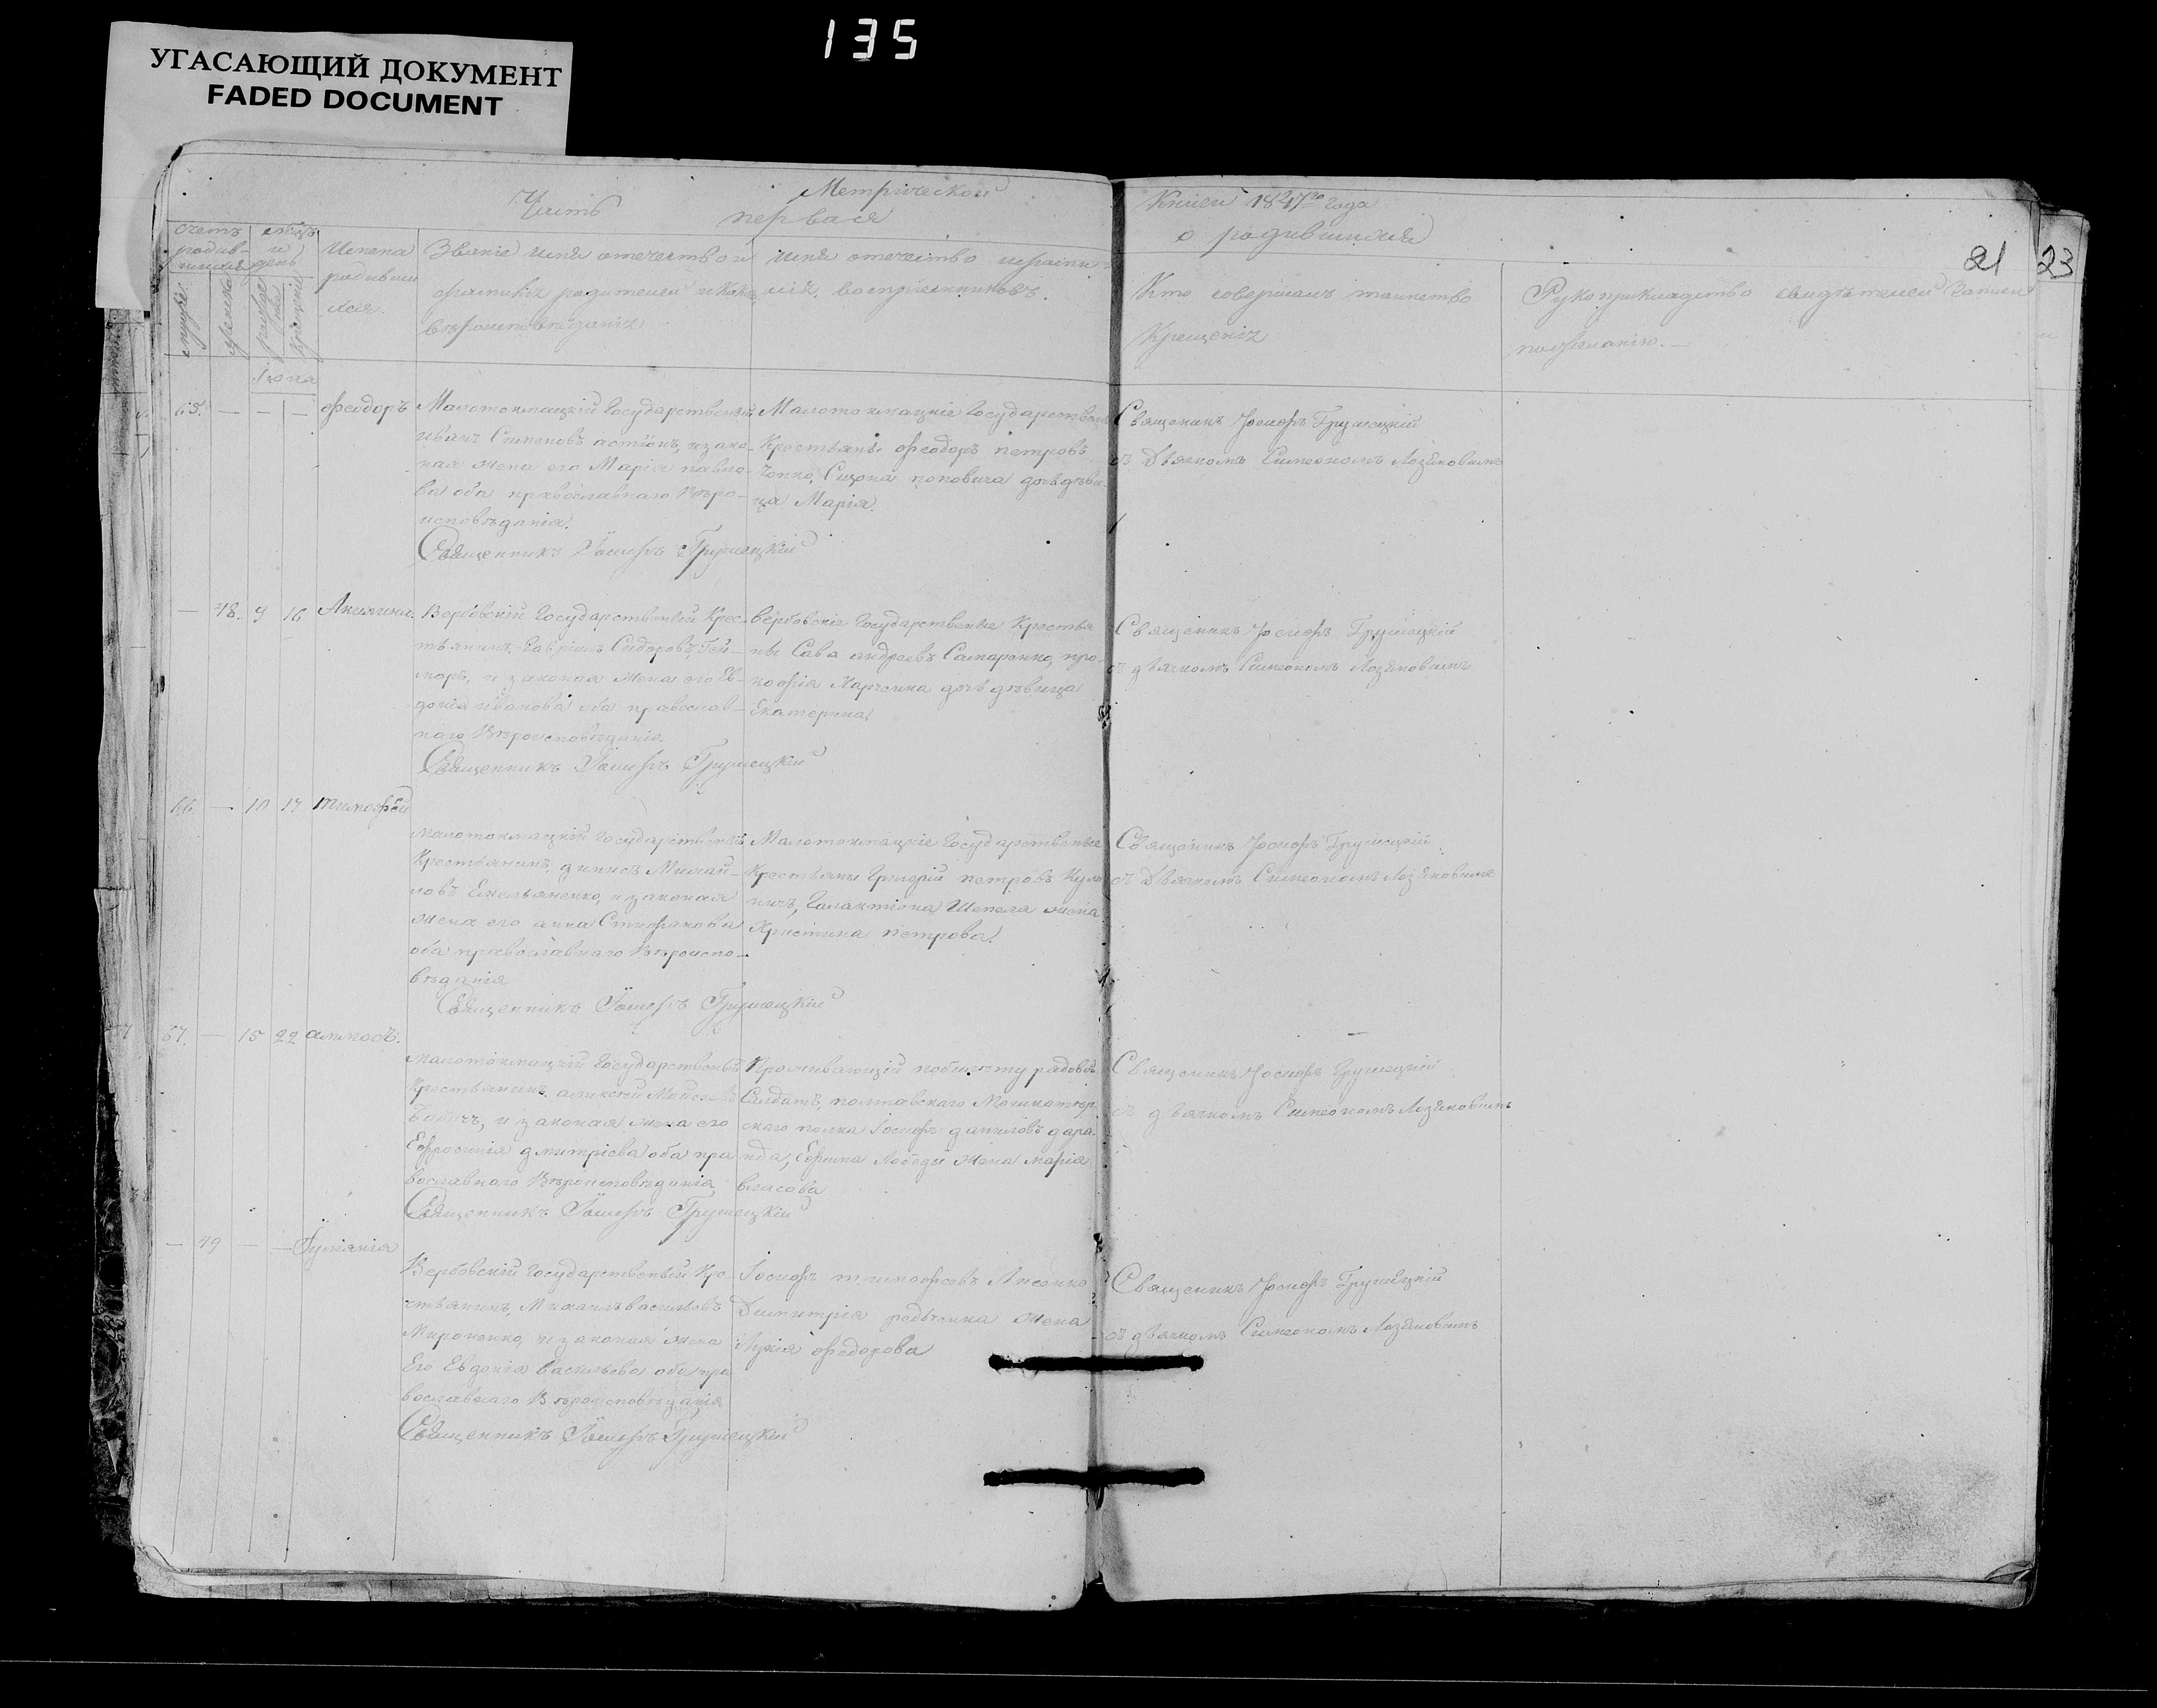 135
УГАСАЮЩИЙ ДОКУМЕНТ
FADED DOCUMENT
Часть Метрической
первая
Книги 1847го года
о родившихся
21 23
Счетъ родившихся
мѣсяцъ и день
мужеска
женска
рожденія
крещенія
Имена
родивши
хся.
Званіе имя отечество и
фамилія родителей и какого
вѣроисповѣданія
имя отечество и фами
лія воспріемниковъ.
Кто совершалъ таинство
Крещенія
Рукоприкладство свидѣтелей записи
по желанію.
Іюня
65. — — — Феодоръ
Малотокмацкій Государственный
Иванъ и зако-
ная жена его Марія Павло-
ва оба православнаго Вѣро-
исповѣданія.
Священникъ Іосифъ Грушецкій
Малотокмацкіе Государственые
Крестьяне Феодоръ петровъ
поповича дочь дѣви-
ца Марія.
Священикъ Іосифъ Грушецкій
съ Дьячкомъ Симеономъ
— 48. 9 16 Акилина.
Вербовскій Государственый Крес-
тьянинъ Гавріилъ Сидоровъ
и законая жена его Ев-
докія иванова оба православ-
наго Вѣроисповѣданія.
Священникъ Іосифъ Грушецкій
Вербовскіе Государственые Крестья
ны Сава андреевъ Самаренко, про-
кофія Харченка дочь дѣвица
Екатерина
Священикъ Іосифъ Грушецкій
съ дьячкомъ Симеономъ
66 — 10 17 Тимофей
Малотокмацкій Государственый
Крестьянинъ, Михай-
ловъ Емельяненко, и законая
жена его анна Стифанова
оба православнаго Вѣроиспо-
вѣданія
Священникъ Іосифъ Грушецкій
Малотокмацкіе Государственые
Крестьяны Григорій петровъ
Галактіона Шепеля жена
Христина петрова.
Священикъ Іосифъ Грушецкій
съ Дьячкомъ Симеономъ
67. — 15 22 аммосъ.
Малотокмацкій Государственый
Крестьянинъ аликсѣй Мойсеевъ
Бабичъ, и законая жена его
Ефросинія дмитріева оба пра
вославнаго Вѣроисповѣданія
Священникъ Іосифъ Грушецкій
Проживающій побилету рядовой
Салдатъ, полтавскаго
скаго полка Іосифъ даниловъ
Ефима Лободы жена марія
власова
Священикъ Іосифъ Грушецкій
съ дьячкомъ Симеономъ
— 49 — — Іуліанія
Вербовскій Государственый Кре-
стьянинъ, Михаилъ васильевъ
Мироненко, и законая жена
Его Евдокія васильева оба пра
вославнаго Вѣроисповѣданія
Священникъ Іосифъ Грушецкій
Іосифъ тимофеевъ Лисенко
Димитрія редьченка жена
федорова
Священикъ Іосифъ Грушецкій
съ дьячкомъ Симеономъ